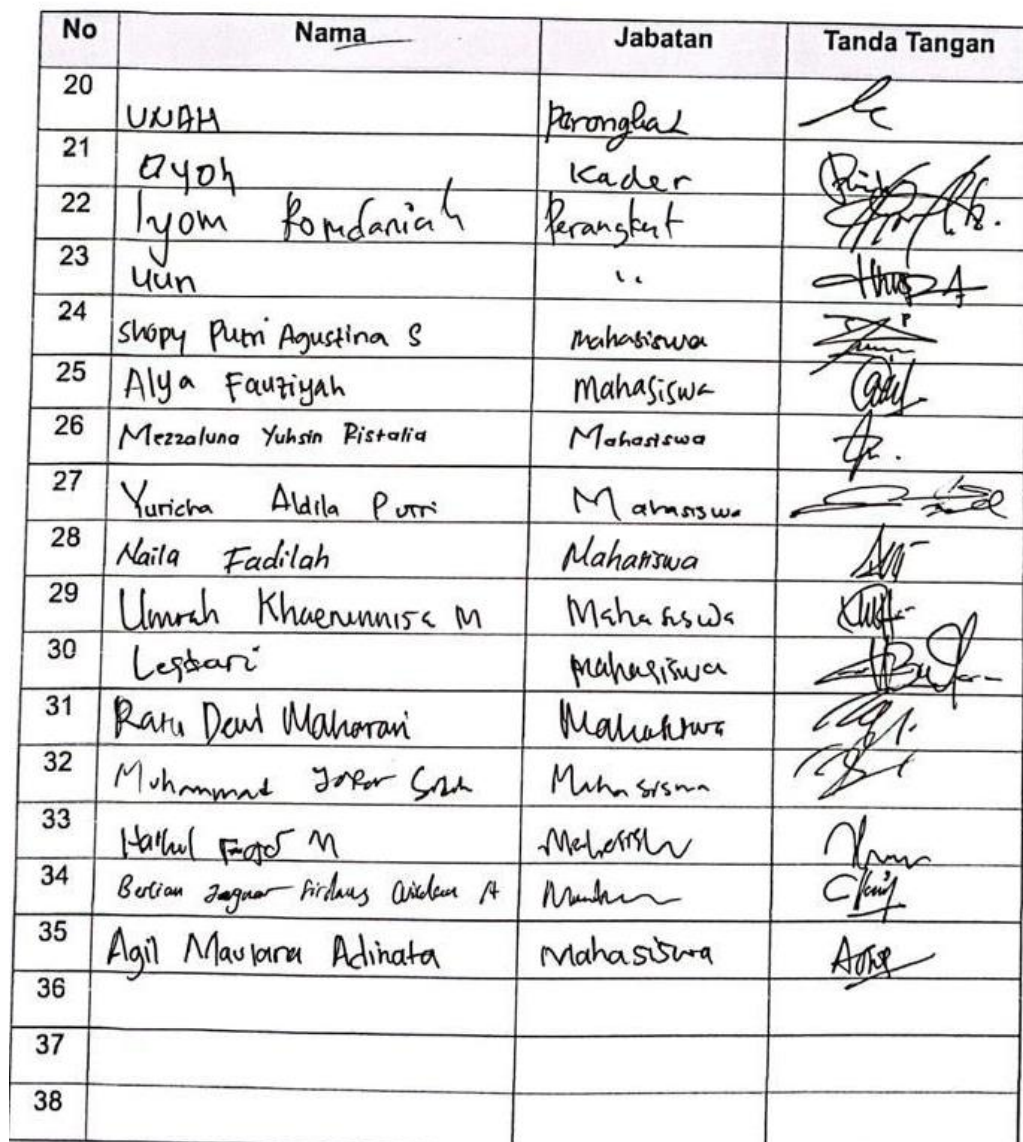 No Nama Jabatan Tanda Tangan
20 UNAH Parongkat
21 Ayoh Kader
22 Iyom Romdaniah Perangkat
23 Uun "
24 Shopy Putri Agustina S Mahasiswa
25 Alya Fauziyah Mahasiswa
26 Mezzaluna Yuhsin Ristalia Mahasiswa
27 Yuricha Aldila Putri Mahasiswa
28 Naila Fadilah Mahasiswa
29 Umrah Khaerunnisa M Mahasiswa
30 Lestari Mahasiswa
31 Ratu Dewi Maharani Mahasiswa
32 Muhammad Mahasiswa
33 M
34
35 Agil Maulana Adinata Mahasiswa
36
37
38